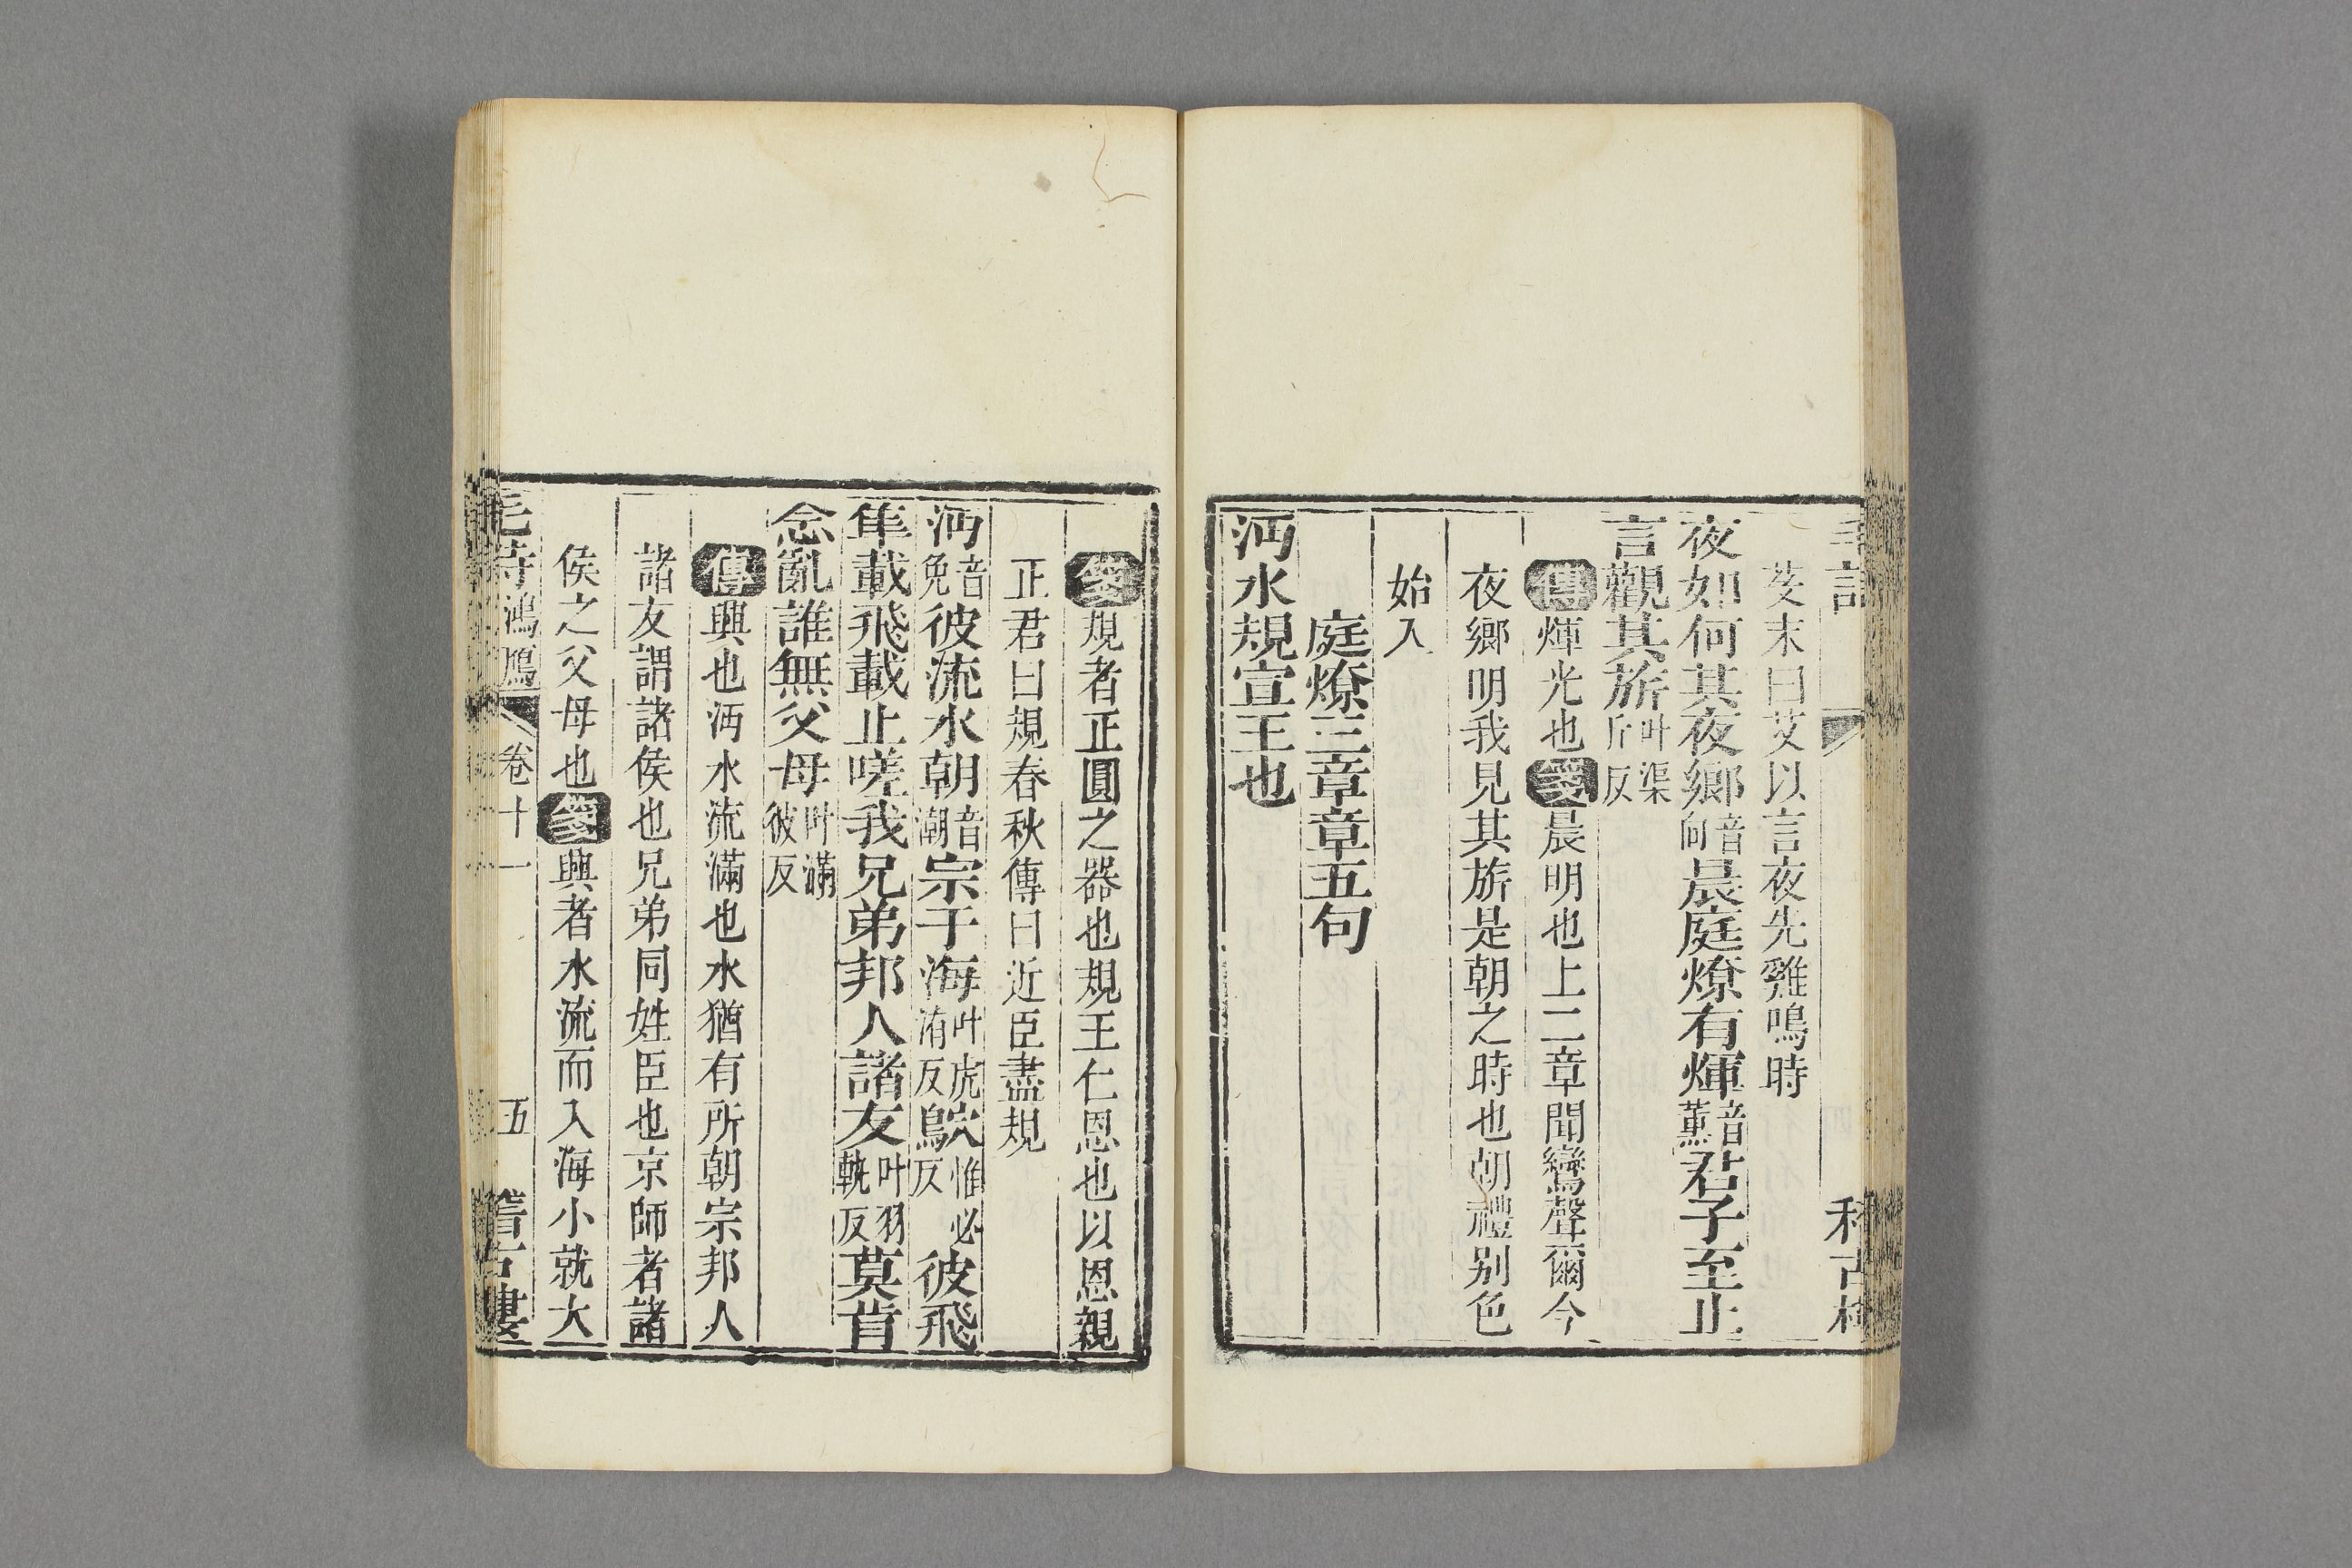 芟末曰艾以言夜先雞鳴時
夜如何其夜鄉音向晨庭燎有煇音薰君子至止
言觀其旂叶渠斤反
傳煇光也箋晨明也上二章聞鸞聲爾今
夜鄉明我見其旂是朝之時也朝禮别色
始入
庭燎三章章五句
沔水規宣王也
箋規者正圓之器也規王仁恩也以恩親
正君曰規春秋傳曰近臣盡規
沔音免彼流水朝音潮宗于海叶虎洧反鴥惟必反彼飛
隼載飛載止嗟我兄弟邦人諸友叶羽軌反莫肯
念亂誰無父母叶滿彼反
傳興也沔水流滿也水猶有所朝宗邦人
諸友謂諸侯也兄弟同姓臣也京師者諸
侯之父母也箋興者水流而入海小就大
毛詩鴻鴈 卷十一 五 稽古樓